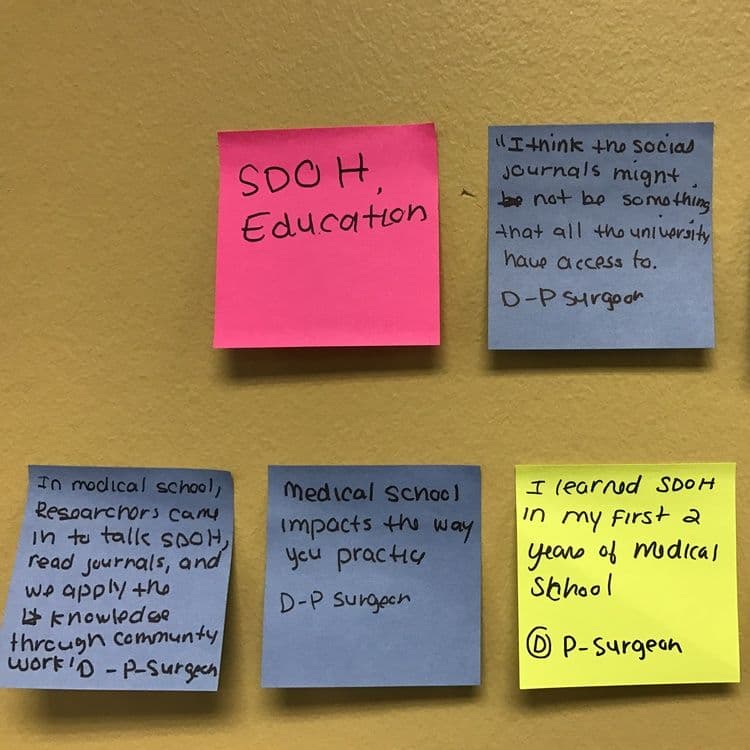 SDOH,
Education
"I think the social
journals might
not be something
that all the university
have access to.
D-P Surgeon
In medical school,
Researchors came
in to talk SDOH,
read journals, and
we apply the
knowledge
through communty
work' D - P-Surgeon
Medical School
impacts the way
you practic
D-P Surgeon
I learned SDOH
in my first 2
years of medical
School
Ⓓ P-Surgeon